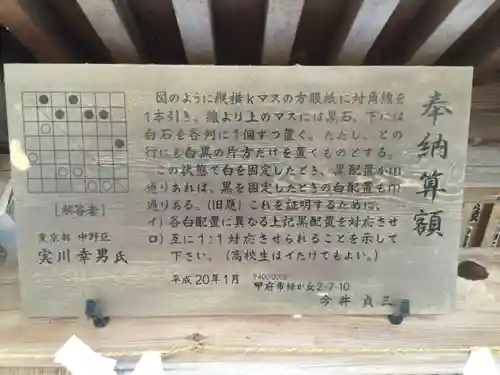 奉納算額
図のように縦横kマスの方眼紙に対角線を
1本引き、線より上のマスには黒石、下には
白石を各列に1個ずつ置く。ただし、どの
行にも白黒の片方だけを置くものとする。
この状態で白を固定したとき、黒配置がm
通りあれば、黒を固定したときの白配置もm
通りある。(旧題)これを証明するために、
イ)各白配置に異なる上記黒配置を対応させ
ロ)互に1:1対応させられることを示して
下さい。(高校生はイだけでもよい。)
平成20年1月
甲府市緑が丘2-7-10
今井 貞三
[解答者]
東京都 中野区
実川 幸男氏